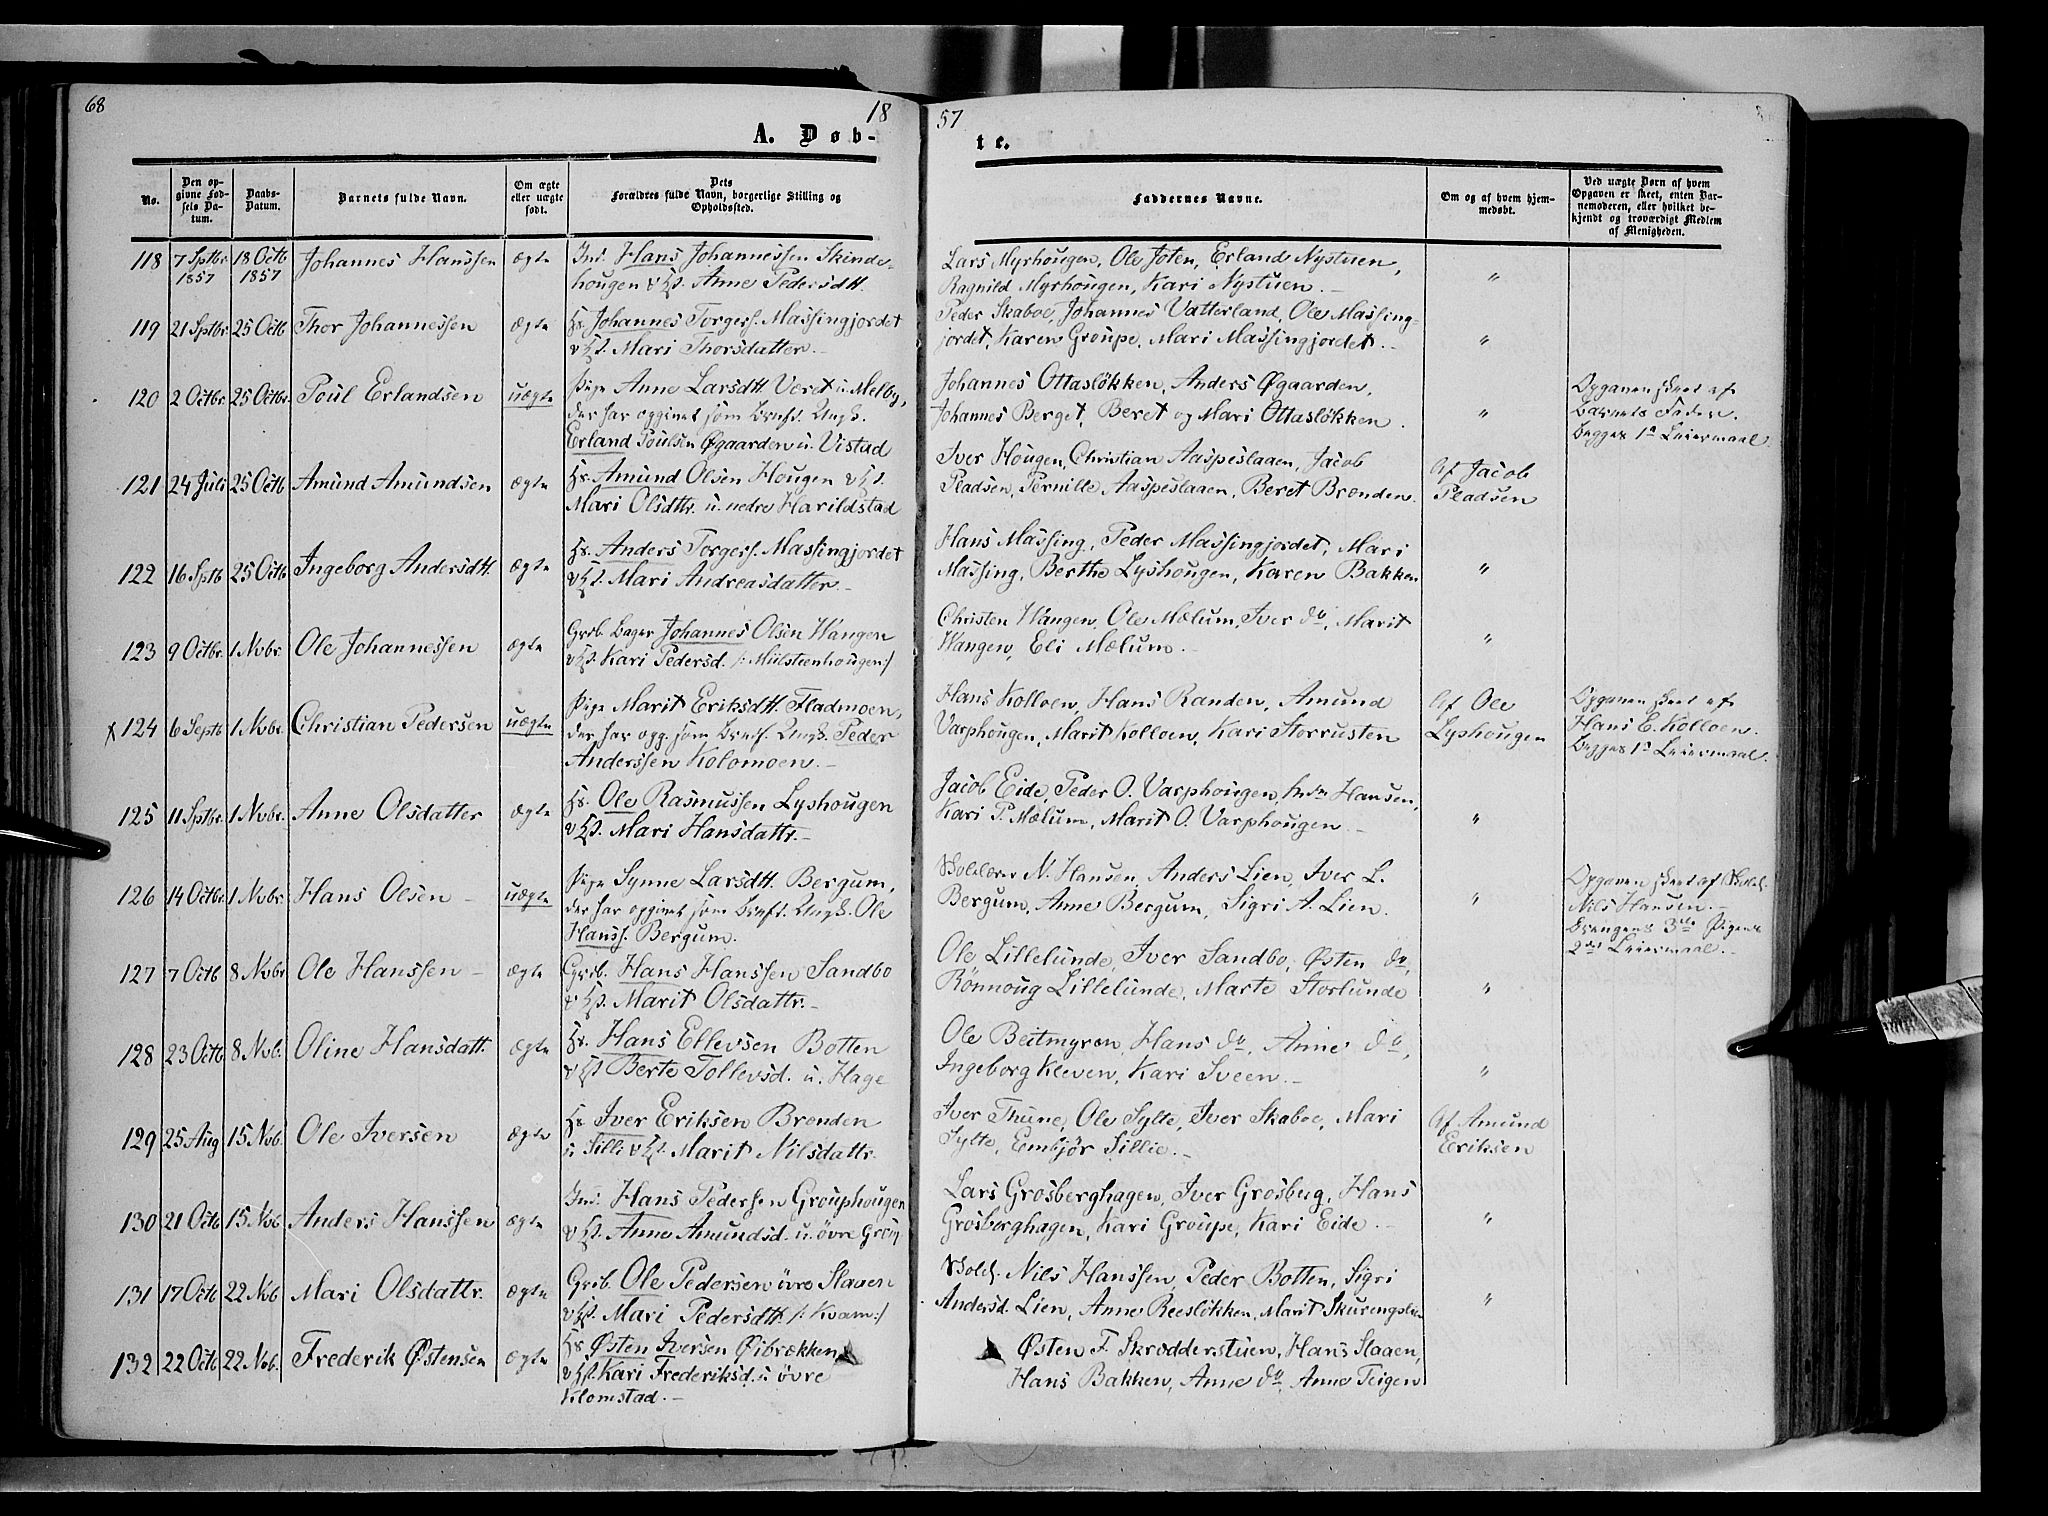 68
18
57
A. Døb-
te.
No.
Den op-
givne Fød-
sels Da-
tum.
Daabs-
Datum.
Barnets fulde Navn.
Om ægte
eller uægte
født.
Dets
Forældres fulde Navn, borgerlige Stilling og
Opholdssted.
Faddernes Navne.
Om og af hvem hjem-
medøbt.
Ved uægte Børn af hvem
Opgaven er skeet, enten Bar-
nemoderen, eller hvilket be-
kjendt og troværdigt Medlem
af Menigheden.
118 7 Septbr. 1857 18 Octb 1857 Johannes Hanssen ægte Ind. Hans Johannessen Skinde-
hougen & Hst. Anne Pedersdtt.
Lars Myrhougen, Ole Joten, Erland Nystuen,
Ragnild Myrhougen, Kari Nystuen. "
119 21 Sptbr. 25 Octb Thor Johannessen ægte Hs. Johannes Torgers. Massingjordet
& Hst. Mari Thorsdatter.
Peder Skaboe, Johannes Vatterland, Ole Massing-
jordet, Karen Groupe, Mari Massingjordet. "
120 2 Octbr. 25 Octbr. Poul Erlandsen uægte Pige Anne Larsdtt. Veret u. Melby,
der har opgivet som Brnf. Ungk.
Erland Poulsen Øgaarden u. Vistad
Johannes Ottasløkken, Anders Øgaarden,
Johannes Berget, Beret og Mari Ottasløkken. "
Opgaven skeet af
Barnets Fader.
Begges 1ste Leiermaal.
121 24 Juli 25 Octb Amund Amundsen ægte Hs. Amund Olsen Hougen & Hst.
Mari Olsdttr. u. nedre Harildstad
Iver Hougen, Christian Aaspeslaaen, Jacob
Pladsen, Pernille Aaspeslaaen, Beret Brenden.
Af Jacob
Pladsen
122 16 Sptb 25 Octb Ingeborg Andersdtt. ægte Hs. Anders Torgers. Massingjordet
& Hst. Mari Andreasdatter.
Hans Massing, Peder Massingjordet, Mari
Massing, Berthe Lyshougen, Karen Bakken "
123 9 Octbr. 1 Nvbr. Ole Johannessen ægte Grb. Bager Johannes Olsen Wangen
& Hst. Kari Pedersd. /: Miilsteenhougen:/
Christen Wangen, Ole Mælum, Iver do, Marit
Wangen, Eli Mælum. "
x 124 6 Septb 1 Nvbr. Christian Pedersen uægte Pige Marit Eriksdtt. Fladmoen,
der har opg. som Brnf. Ungk. Peder
Anderssen Kolomoen.
Hans Kolloen, Hans Randen, Amund
Varphougen, Marit Kolloen, Kari Storrusten
Af Ole
Lyshougen
Opgaven skeet af
Hans E. Kolloen.
Begges 1ste Leiermaal.
125 11 Sptbr. 1 Nvbr. Anne Olsdatter ægte Hs. Ole Rasmussen Lyshougen
& Hst. Mari Hansdattr.
Jacob Eide, Peder O. Varphougen, Hansen,
Kari P. Mælum, Marit O. Varphougen. "
126 14 Octbr. 1 Nvbr. Hans Olsen uægte Pige Synne Larsdtt. Bergum,
der har opgivet som Brnf. Ungk. Ole
Hanss. Bergum.
Skolelærer N. Hansen, Anders Lien, Iver L.
Bergum, Anne Bergum, Sigri A. Lien. "
Opgaven skeet af Skolel.
Nils Hansen.
Drengens 3die Pigens
2det Leiermaal.
127 7 Octb 8 Nvbr Ole Hanssen ægte Grb. Hans Hanssen Sandbo
& Hst. Marit Olsdattr.
Ole Lillelunde, Iver Sandbo, Østen do,
Rønnoug Lillelunde, Marte Storlunde "
128 23 Octb 8 Nvb. Oline Hansdatt. ægte Hs. Hans Ellevsen Botten
& Hst Berte Tollevsd. u. Hage
Ole Beitmyren, Hans do, Anne do,
Ingeborg Kleven, Kari Sveen. "
129 25 Aug 15 Nvb. Ole Iversen ægte Hs Iver Eriksen Brenden
u Silli & Hst. Marit Nilsdattr.
Iver Thune, Ole Sylte, Iver Skaboe, Mari
Sylte, Embjør Sillie.
Af Amund
Eriksen
130 21 Octb 15 Nvb Anders Hanssen ægte Ind. Hans Pedersen Grouphougen
& Hst. Anne Amundsd. u. øvre Group
Lars Grosberghagen, Iver Grosberg, Hans
Grosberghagen, Kari Groupe, Kari Eide. "
131 17 Octb 22 Nvb Mari Olsdattr. ægte Grb. Ole Pedersen øvre Slaaen
& Hst. Mari Pedersdtt. /: Kvam:/
Skolel. Nils Hanssen, Peder Botten, Sigri
Andersd. Lien, Anne Reesløkken, Marit "
132 22 Octb 22 Nvb. Frederik Østensen ægte Hs Østen Iversen Øibrækken
& Hst. Kari Frederiksd. u øvre
Klomstad.
Østen F. Skrædderstuen, Hans Slaaen,
Hans Bakken, Anne do, Anne Teigen